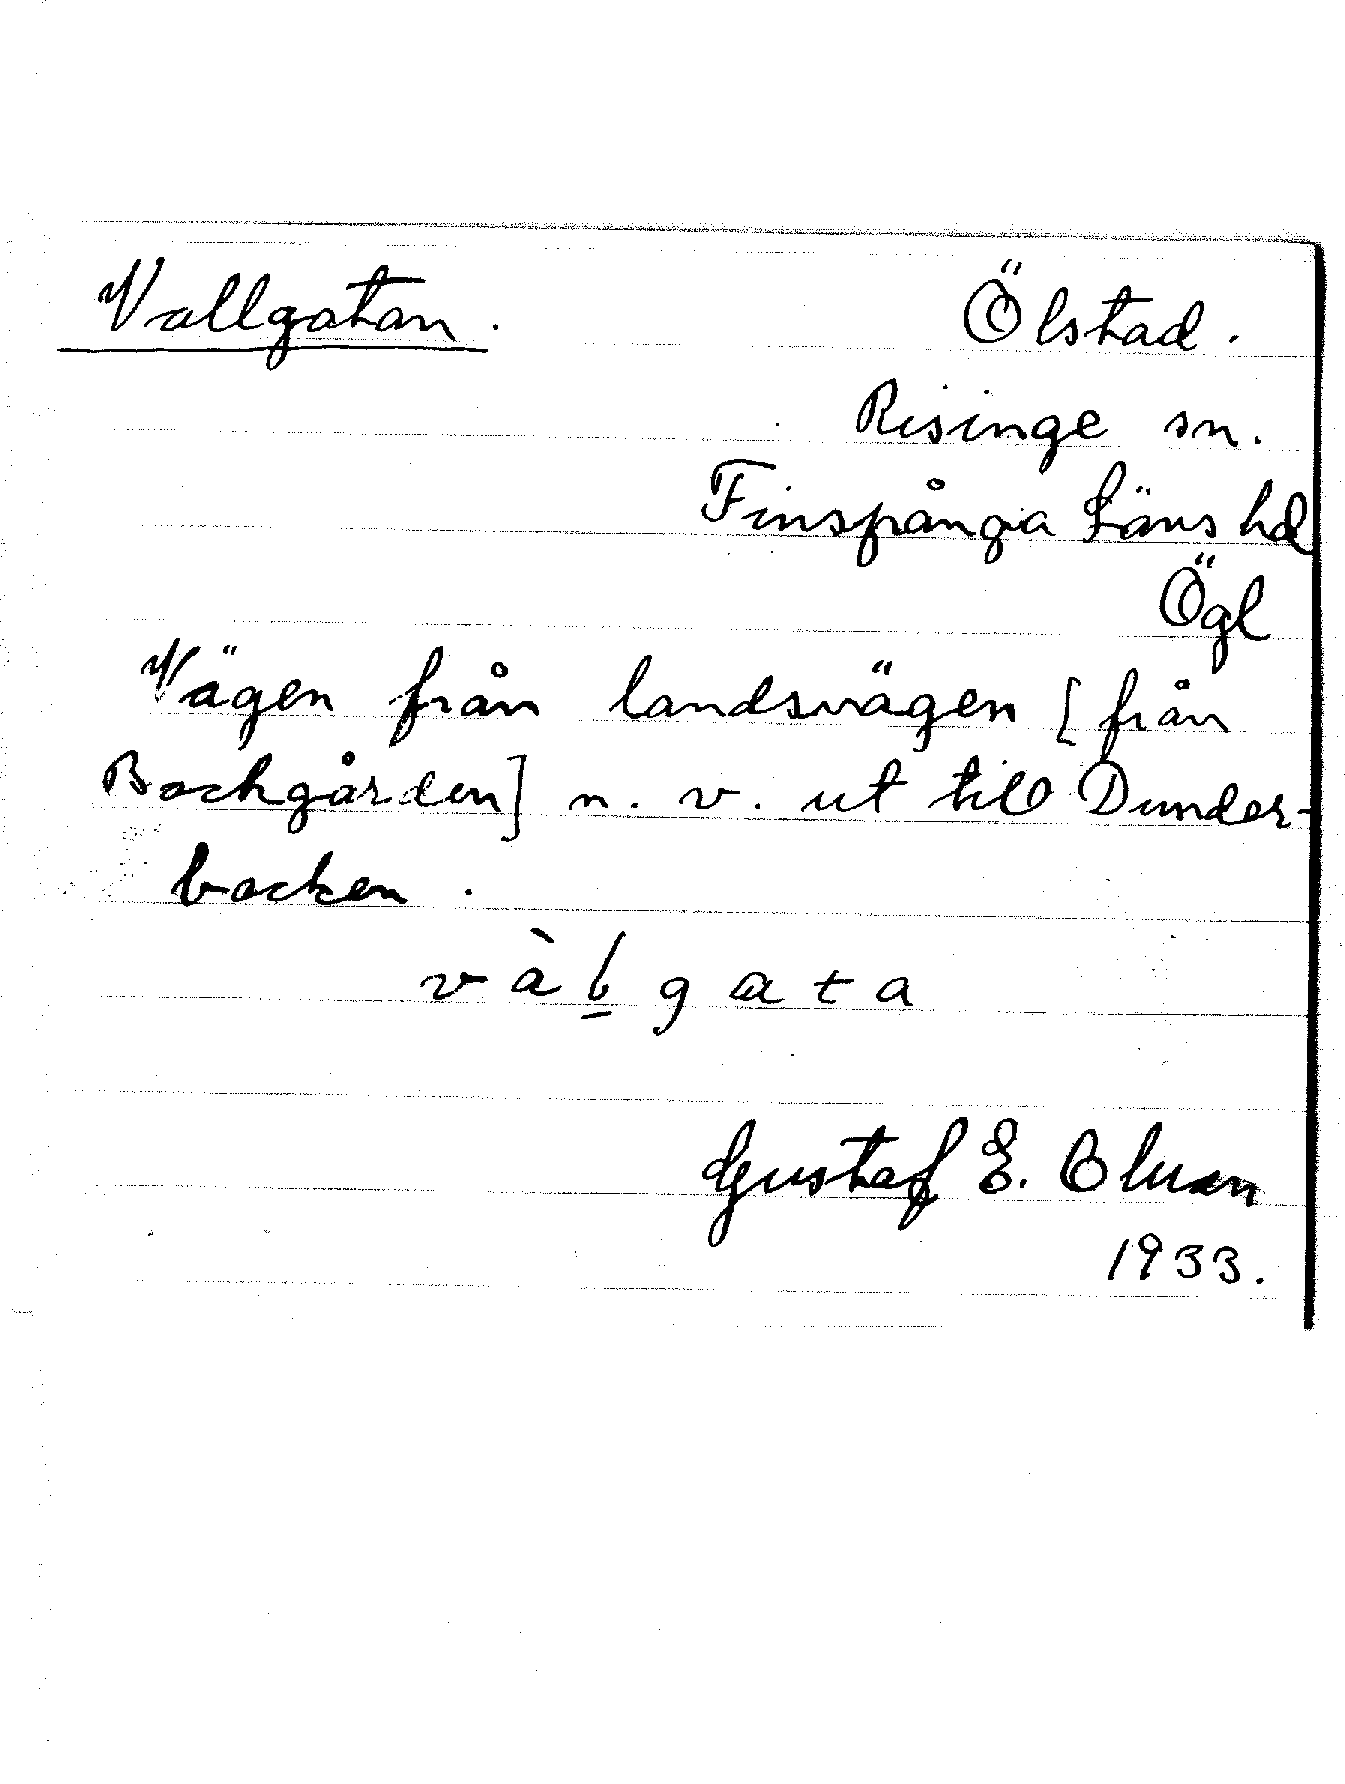 Vallgatan. Ölstad.
Risinge sn.
Finspånga Läns hd
Ögl
Vägen från landsvägen [från
Bockgården] n. v. ut till Dunder-
backen.
gata
Gustaf E.
1933.